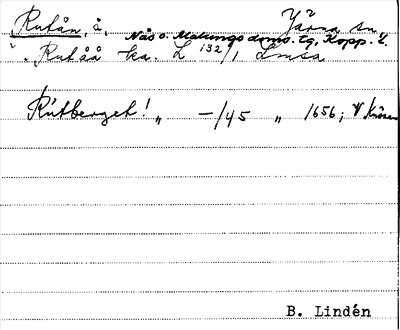 Rutån, å. Järna sn.
Nås o. Malungs doms. tg, Kopp. l.
Rutåå ka. L 132/1 Lmsa
Rutberget! " —/45 " 1656;
B. Lindén